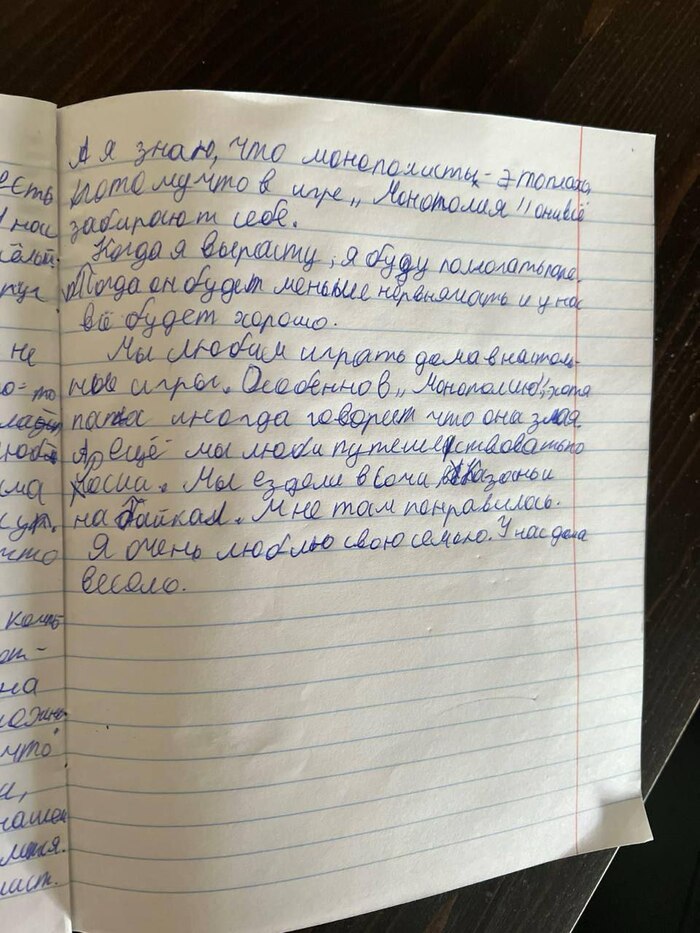 есть
нас
не
что
на
что
А я знаю, что монополисты - это плохо,
потому что в игре „Монополия" они всё
забирают себе.
Когда я вырасту, я буду помогать папе.
Тогда он будет меньше нервничать и у нас
всё будет хорошо.
Мы любим играть дома в настоль-
ные игры. Особенно в „Монополию", хотя
папа иногда говорит что она злая
ещё мы люби путешествовать по
Мы ездели в Сочи, Казань и
на Байкал. Мне там понравилось.
Я очень люблю свою семью. У нас дома
весело.